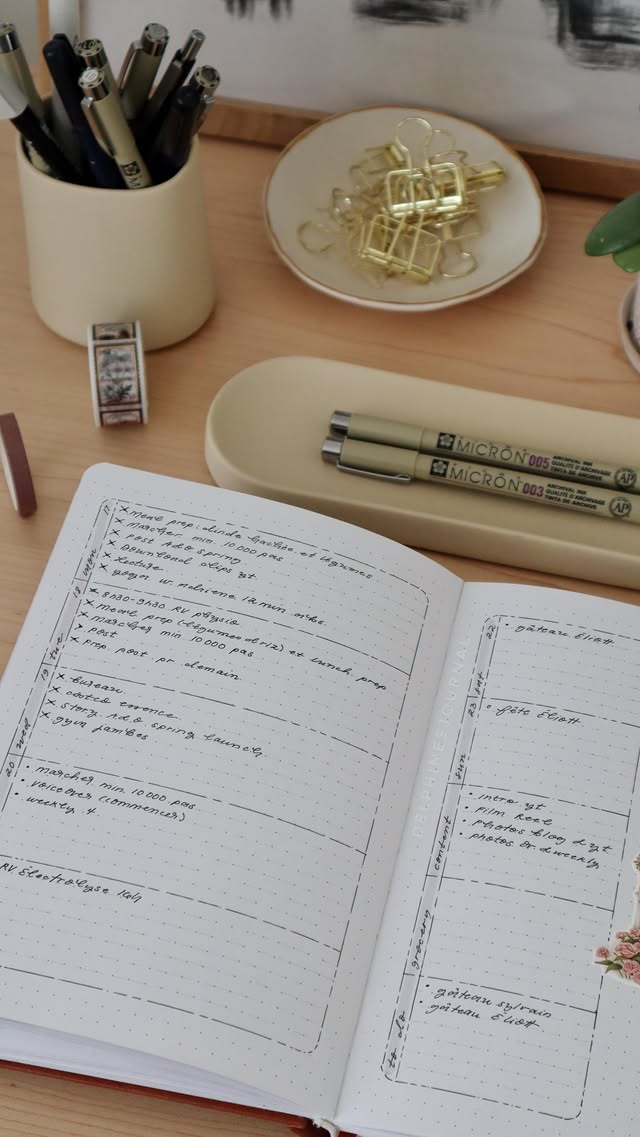 MICRON 005 ARCHIVAL INK
QUALITÉ D'ARCHIVAGE
TINTA DE ARCHIVO
AP
MICRON 003 ARCHIVAL INK
QUALITÉ D'ARCHIVAGE
TINTA DE ARCHIVO
AP
17 mon
x meal prep: dinde hachée et légumes
x marcher min. 10 000 pas
x post A&O spring
x Download clips yt
x lecture
x gym w. mom
18 tue
x 8h30-9h30 RV physio
x meal prep (légumes & riz) et lunch prep
x marcher min 10 000 pas
x post
x prep. post pr demain
19 wed
x bureau
x costco essence
x story A&O spring launch
x gym jambes
20
• marcher min. 10 000 pas
• voiceover (commencer)
• weekly 4
RV Électrolyse 16h
DELPHINESJOURNAL
22 sat
• gâteau Éliott
23 sun
• fête Éliott
content
• intro yt
• film Reel
• photos blog & yt
• photos & weekly
grocery
to do
• gâteau sylvain
• gâteau Éliott